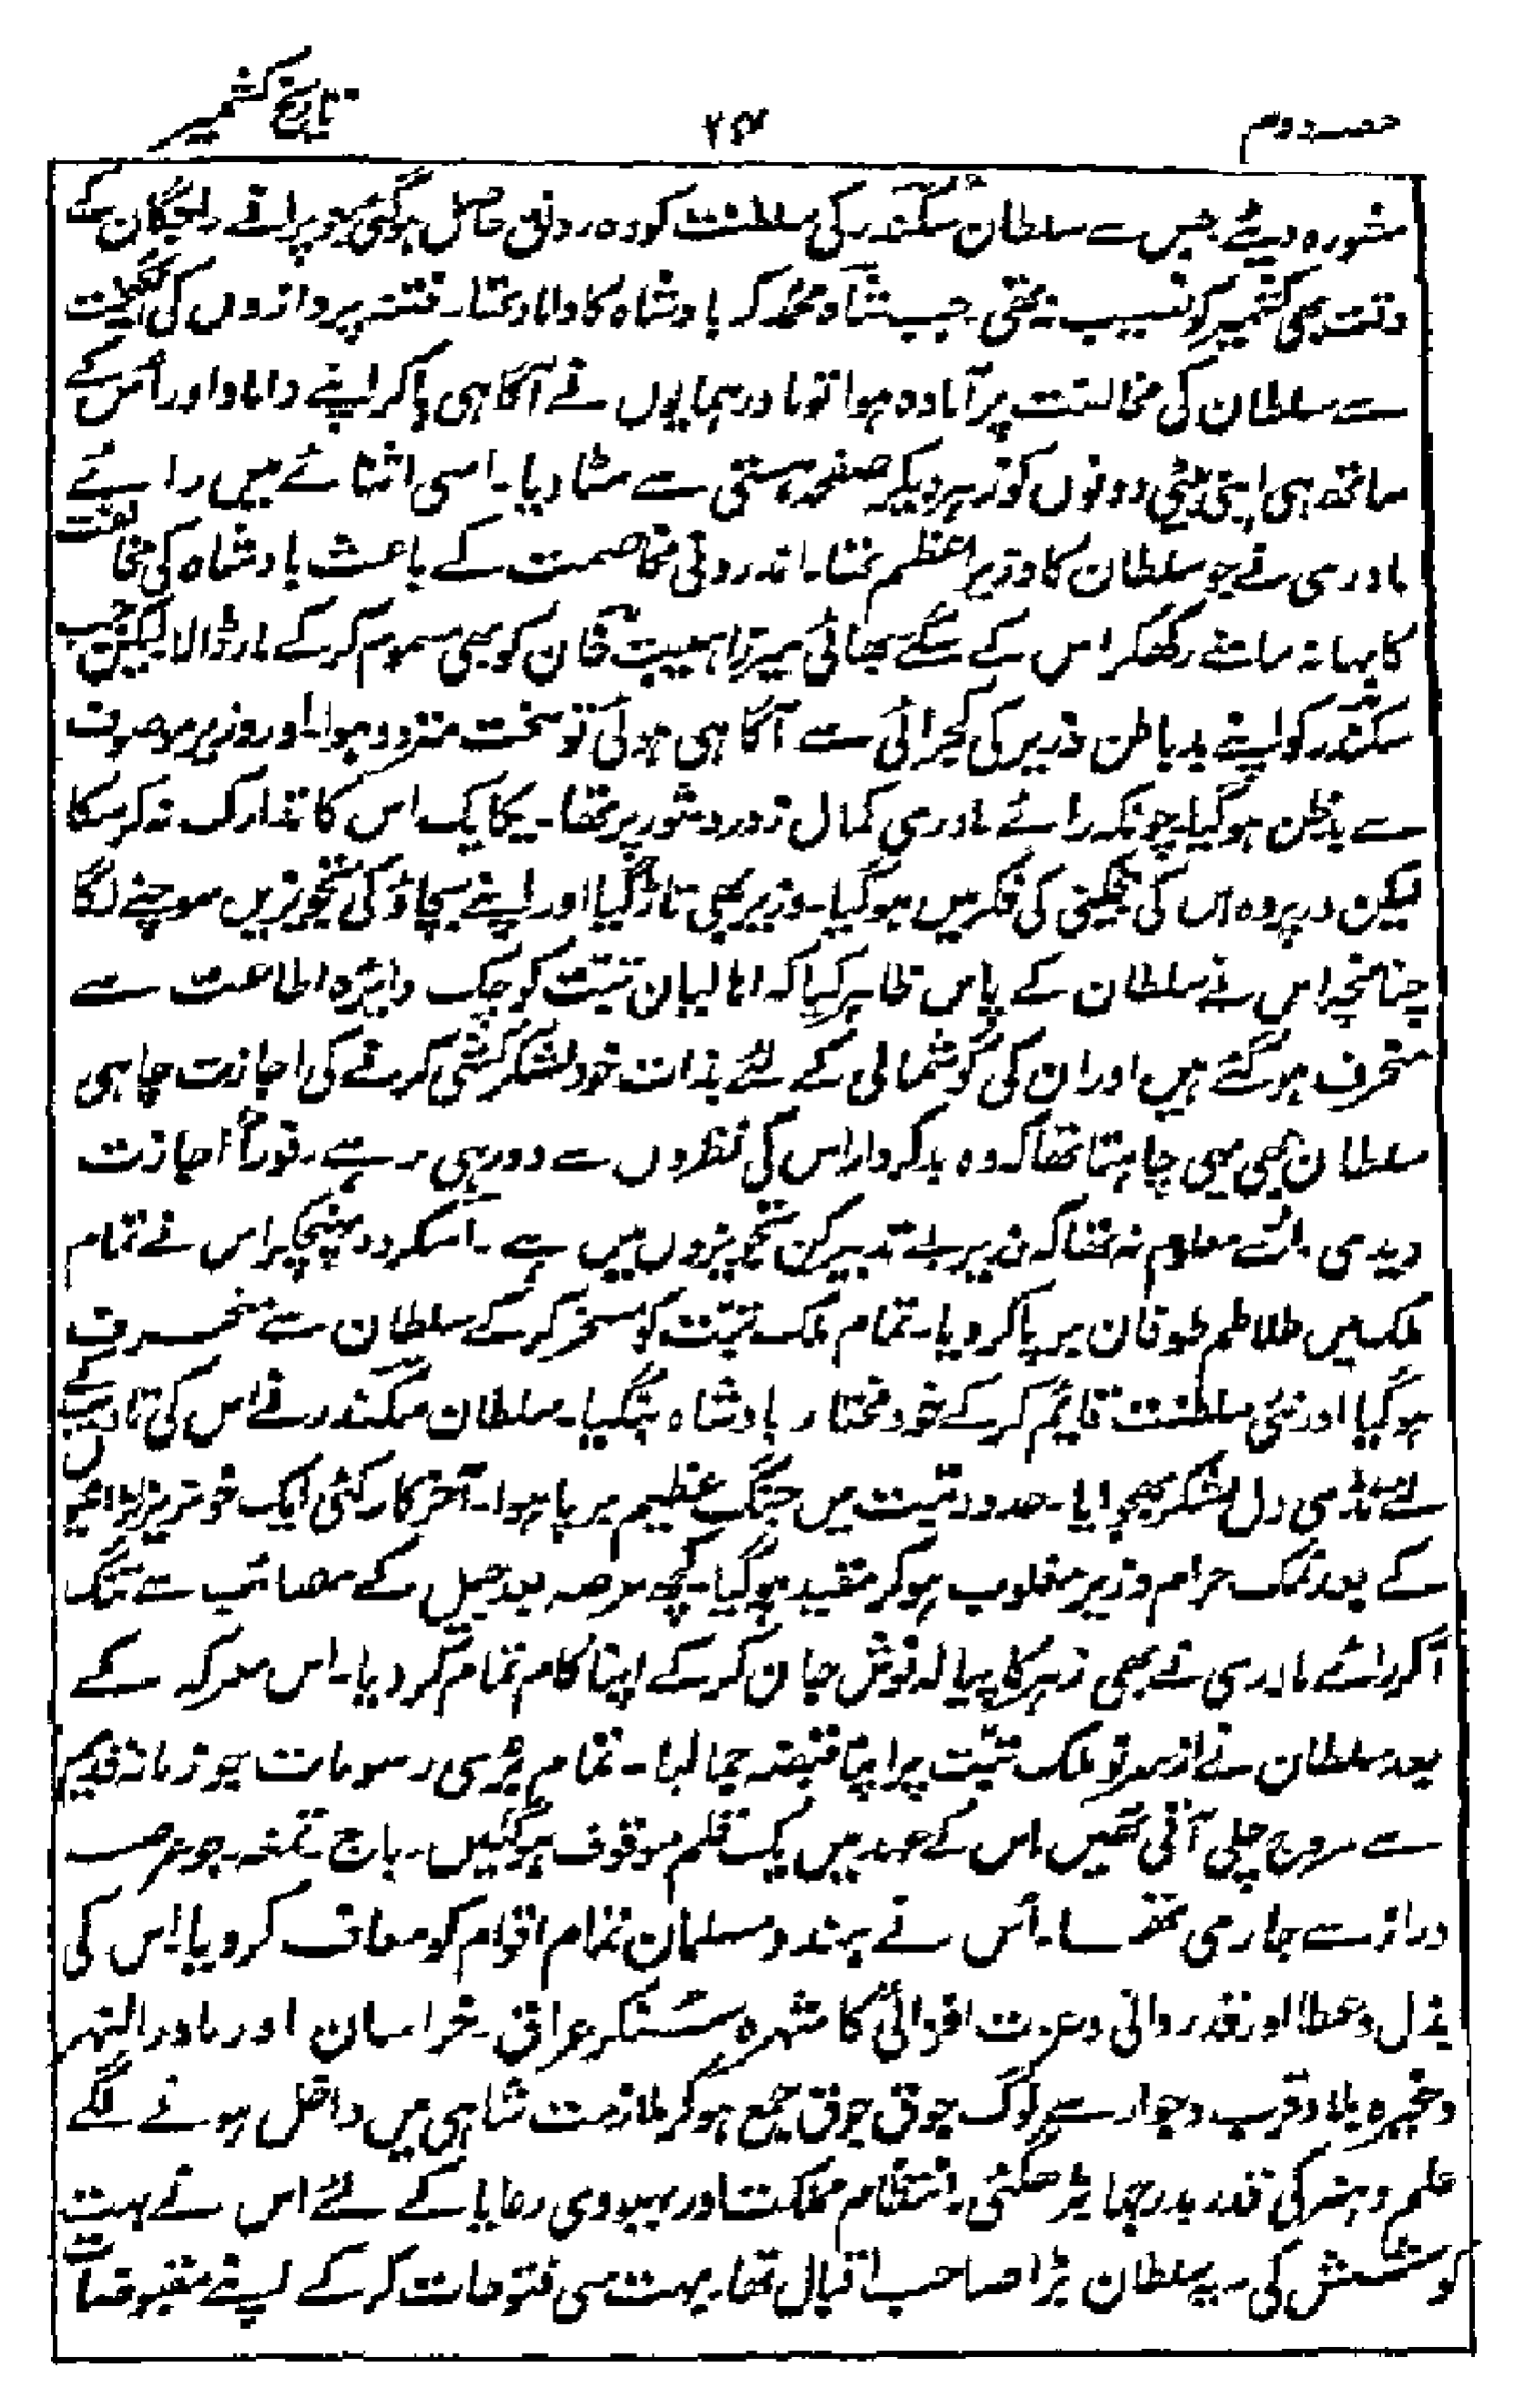 حصہ دوم
۲۴
تاریخ کشمیر
مشورہ دیئے جس سے سلطان سکندر کی سلطنت کو وہ رونق حاصل ہوگئی جو پرانے راجگان کے
وقت بھی کشمیر کو نصیب نہ تھی۔ جب شاہ محمد کہ بادشاہ کا داماد تھا۔ فتنہ پردازوں کی انگیخت
سے سلطان کی مخالفت پر آمادہ ہوا تو مادر ہمایوں نے آگاہی پاکر اپنے داماد اور اُس کے
ساتھ ہی اپنی بیٹی دونوں کو زہر دیکر صفحہ ہستی سے مٹا دیا۔ اسی اثنائے میں رائے
مادری نے جو سلطان کا وزیر اعظم تھا۔ اندرونی مخاصمت کے باعث بادشاہ کی مخالفت
کا بہانہ سامنے رکھکر اس کے سگے بھائی میرزا ہیبت خان کو بھی مسموم کرکے مار ڈالا لیکن جب
سکندر کو اپنے بد باطن وزیر کی کجرائی سے آگاہی ہوئی تو سخت متردد ہوا۔ اور وزیر موصوف
سے بدظن ہوگیا چونکہ رائے مادری کمال زور و شور پر تھا۔ یکایک اس کا تدارک نہ کر سکا
لیکن درپردہ اس کی بیخکنی کی فکر میں ہوگیا۔ وزیر بھی تاڑ گیا اور اپنے بچاؤ کی تجویزیں سوچنے لگا
چنانچہ اس نے سلطان کے پاس ظاہر کیا کہ اہالیان تبت کوچک دائرہ اطاعت سے
منحرف ہوگئے ہیں اور ان کی گوشمالی کے لئے بذات خود لشکر کشی کرنے کی اجازت چاہی
سلطان بھی یہی چاہتا تھا کہ وہ بدکردار اس کی نظروں سے دور ہی رہے۔ فوراً اجازت
دیدی۔ اُسے معلوم نہ تھا کہ وزیر بے تدبیر کن تجویزوں میں ہے۔ اسکردو پہنچکر اس نے تمام
ملک میں طلاطم طوفان برپا کر دیا۔ تمام ملک تبت کو مسخر کرکے سلطان سے منحرف
ہوگیا اور نئی سلطنت قائم کرکے خود مختار بادشاہ بنگیا۔ سلطان سکندر نے اس کی تادیب کے
لئے ٹڈی دل لشکر بھجوایا۔ حدود تبت میں جنگ عظیم برپا ہوا۔ آخر کار کئی ایک خونریز لڑائیوں
کے بعد نمک حرام وزیر مغلوب ہوکر مقید ہوگیا۔ کچھ عرصہ بعد جیل کے مصائب سے تنگ
آکر رائے مادری نے بھی زہر کا پیالہ نوش جان کرکے اپنا کام تمام کر دیا۔ اس معرکہ کے
بعد سلطان نے از سر نو ملک تبت پر اپنا قبضہ جما لیا۔ تمام بُری رسومات جو زمانہ قدیم
سے مروج چلی آتی تھیں اس کے عہد میں یک قلم موقوف ہوگئیں۔ باج تمغہ جو عرصہ
دراز سے جاری تھا۔ اُس نے ہندو مسلمان تمام اقوام کو معاف کر دیا۔ اس کی
بذل و عطا اور قدردانی و عزت افزائی کا شہرہ سُنکر عراق۔ خراسان اور ماورالنہر
وغیرہ بلاد قرب و جوار سے لوگ جوق جوق جمع ہوکر ملازمت شاہی میں داخل ہونے لگے
علم و ہنر کی قدر بدرجہا بڑھگئی۔ انتظام مملکت اور بہبودی رعایا کے لئے اس نے بہت
کوشش کی۔ یہ سلطان بڑا صاحب اقبال تھا۔ بہت سی فتوحات کرکے اپنے مقبوضات